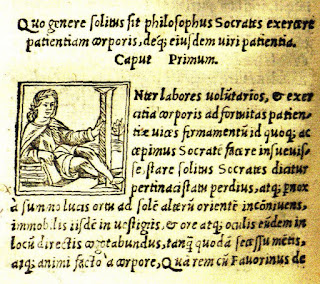 Quo genere solitus sit philosophus Socrates exercere
patientiam corporis, deq; eiusdem viri patientia.
Caput Primum.
Nter labores volūtarios, & exer
citia corporis ad fortuitas patien
tiæ vices firmamentū id quoq; ac
cepimus Socratē facere insueuis-
se. stare solitus Socrates dicitur
pertinaci statu perdius, atq; pnox
à summo lucis ortu ad solē alterū orientē inconiuens,
immobilis iisdē in vestigiis, & ore atq; oculis eūdem in
locū directis cogitabundus, tanq̃ quodā secessu mētis,
atq; animi facto à corpore, Quā rem cū Fauorinus de